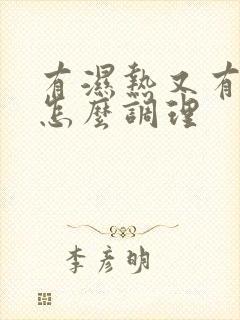 有濕熱又有
怎麼調理
李彥明